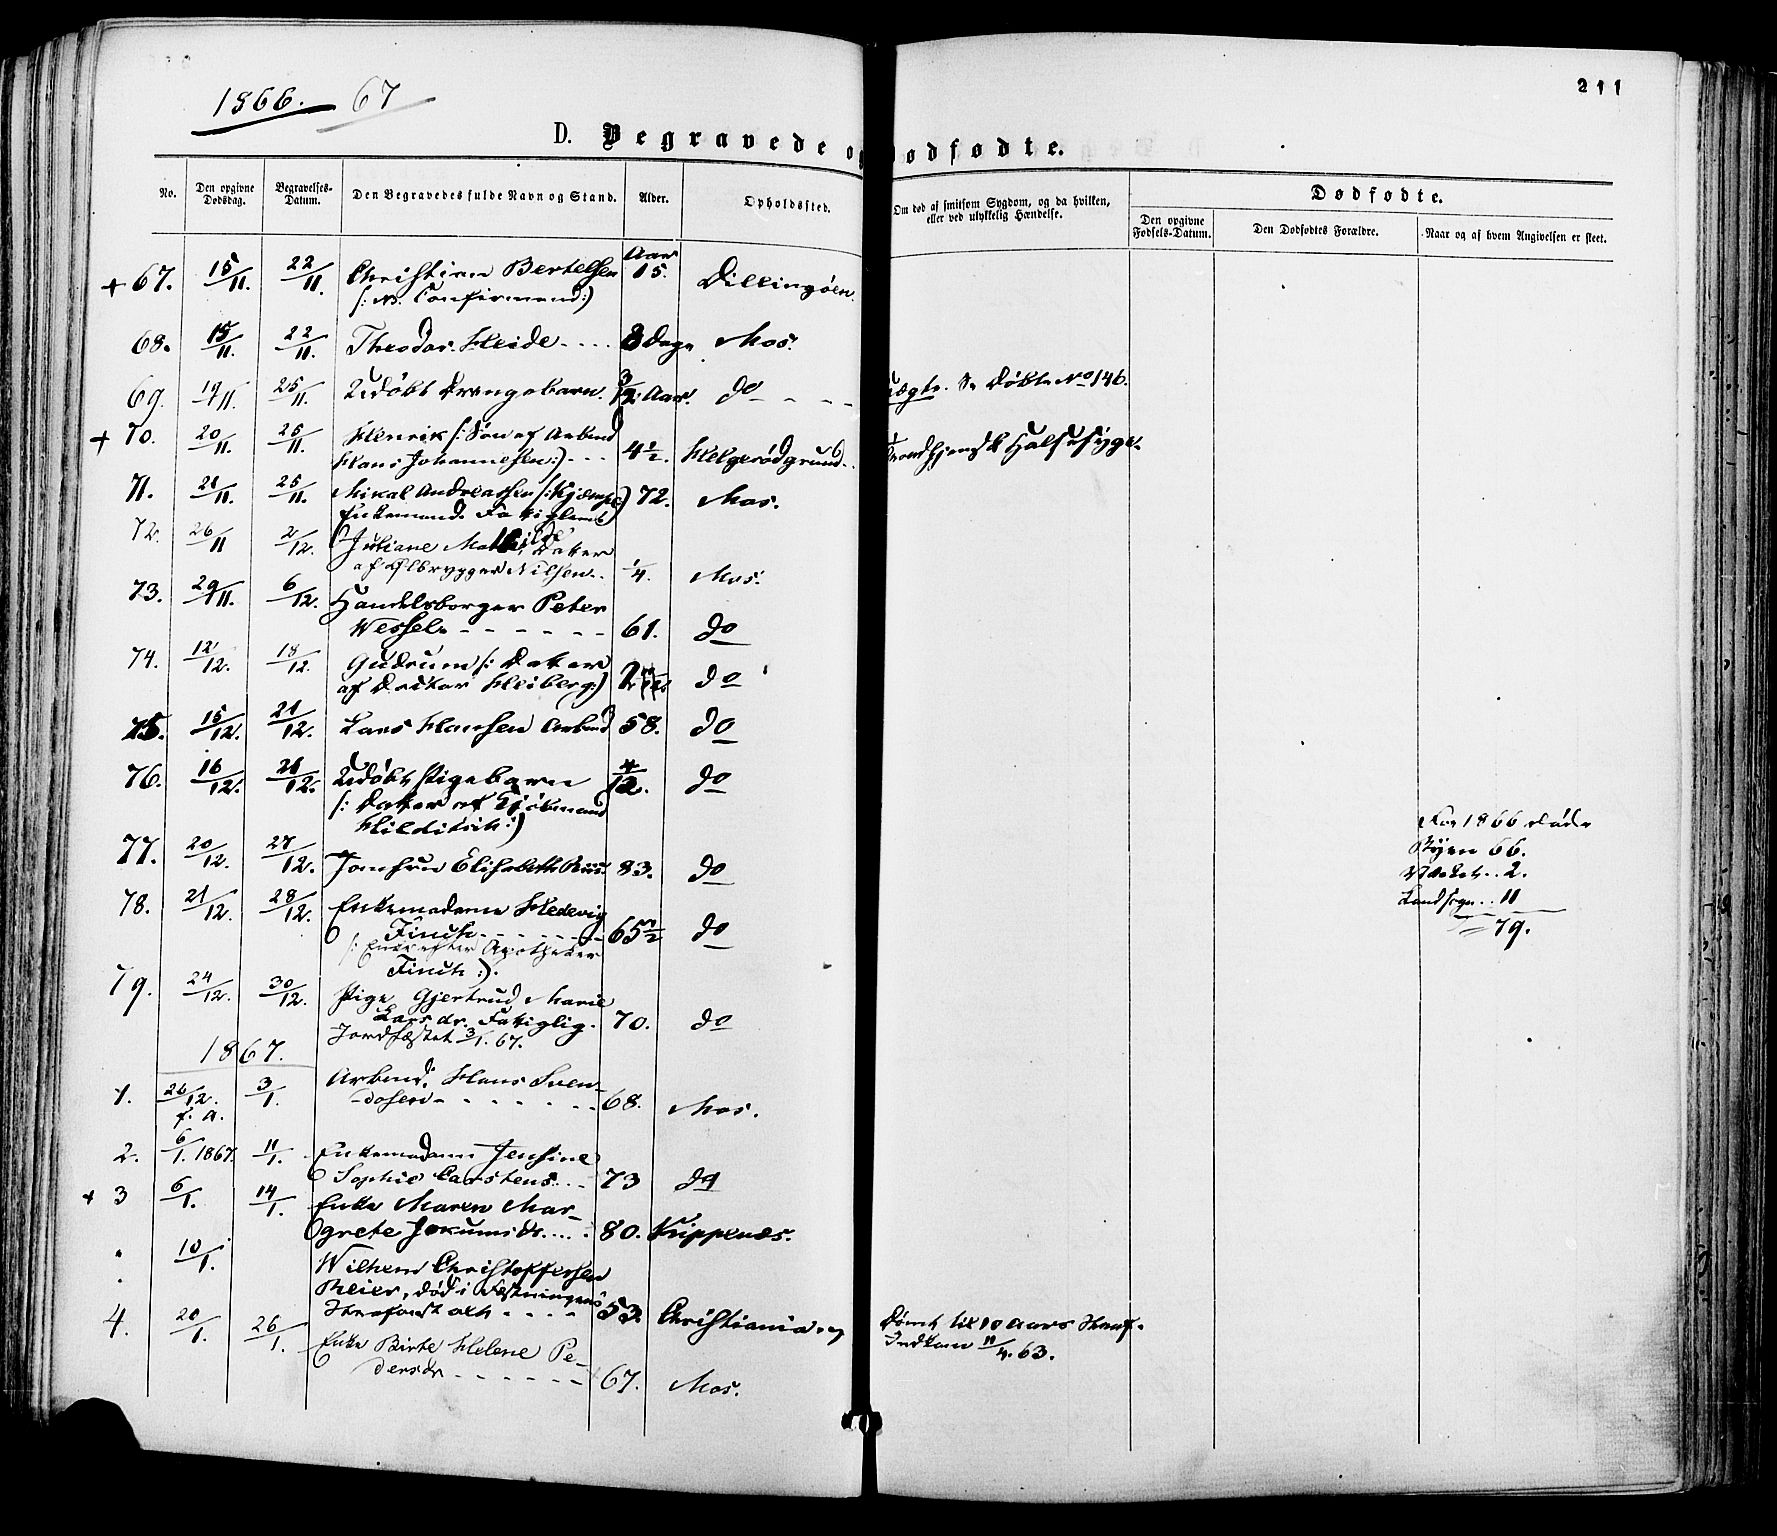 1866. 67
211
D. Begravede o dødfødte.
No. Den opgivne Dødsdag. Begravelses-Datum. Den Begravedes fulde Navn og Stand. Alder. Opholdssted. Om død af smitsom Sygdom, og da hvilken, eller ved ulykkelig Hændelse. Dødfødte.
Den opgivne Fødsels-Datum. Den Dødfødtes Forældre. Naar og af hvem Angivelsen er skeet.
+ 67. 15/11. 22/11. Christian Bertelsen Aar 15. Dillingøen.
(: Confirmand :)
68. 15/11. 22/11. Theodor Heide - - - - 8 Dage Mos.
69. 19/11. 25/11. Udøbt Drengebarn. 3/12 Aar. do - - - - Uægte. Se Døbte No 146.
+ 70. 20/11 25/11. Henrik (: Søn af Arbmd
Hans Johannesen :) - - - 4 1/2. Helgerødgrund. Trondhjemsk Halssyge.
71. 21/11. 25/11. Mikal Andreassen (: Kjempe) 72. Mos.
Enkemand. Fattiglem
72. 26/11 2/12. Juliane Mathilde, Datter
af Ølbrygger Nilsen.. 1/4. Mos.
73. 29/11. 6/12. Handelsborger Peter
Wessel. - - - - - - 61. do
74. 12/12. 18/12. Gudrun (: Datter
af Doctor Heiberg :) do
75. 15/12. 21/12. Lars Hansen Arbmd 58. do
76. 16/12. 21/12. Udøbt Pigebarn 4/12. do
(: Datter af Kjøbmand
Hilditch :)
77. 20/12. 27/12. Jomfru Elisabeth 83. do
78. 21/12. 28/12. Enkemadame Hedevig
Finck - - - - - - - 65 1/2 do
(: Enke efter Apotheker
Finck :).
79. 24/12. 30/12. Pige Gjertrud Marie
Larsdr. Fattiglig. 70. do
Jordfæstet 3/1. 67.
For 1866 døde
Byen 66.
2.
Landsogn.. 11
79.
1867.
1. 26/12. f. a. 3/1. Arbmd. Hans Sven-
-dsen - - - - - - - 68. Mos.
2. 6/1. 1867. 11/1. Enkemadam Jensine
Sophie Carstens.... 73 do
+ 3 6/1. 14/1. Enke Maren Mar-
grete Jokumsdr..... 80. Krippenæs.
" 10/1. Wilhem Christoffersen
Meier, død i Fæstningens
Strafanstalt - - - - 53. Christiania. Dømt til 10 Aars Straf.
Indkom 11/4. 63.
4. 20/1. 26/1. Enke Birte Helene Pe-
dersdr - - - - - - 67. Mos.